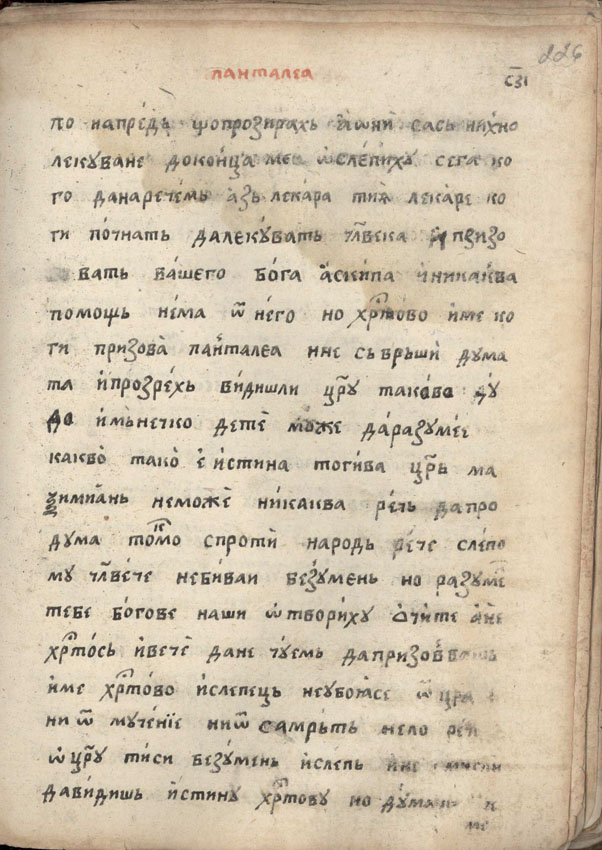 226
ПАНТАЛЕА
сзі
по напредь щопрозирахь аѡни сась нихно
лекуване доконца ме ѡслепиху сега ко
го данаречемь азь лекара тиѧ лекаре ко
ги почнать далекувать чл҃века и призо
вать вашего бога аскипа иникаква
помощь нема ѿ него но хрⷭ҇тово име ко
ги призова панталеа ине съврьши дума
та ипрозрехь видишли цр҃у такова чу
до имънечко дете може даразумее
какво тако е истина тогива цр҃ь ма
ѯимиань неможе никаква речь дапро
дума томо спроти народь рече слепо
му чл҃вече небиваи безумень но разуме
тебе богове наши ѿвориху очите ане
хрⷭ҇тось ивече дане чуемь дапризовавашь
име хрⷭ҇тово ислепець неубоѧсе ѿ цра
ни ѿ мучение ни ѿ самрьть нело рече
ѡ цр҃у тиси безумень ислепь ине
давидишь истину хрⷭ҇тову но
ме